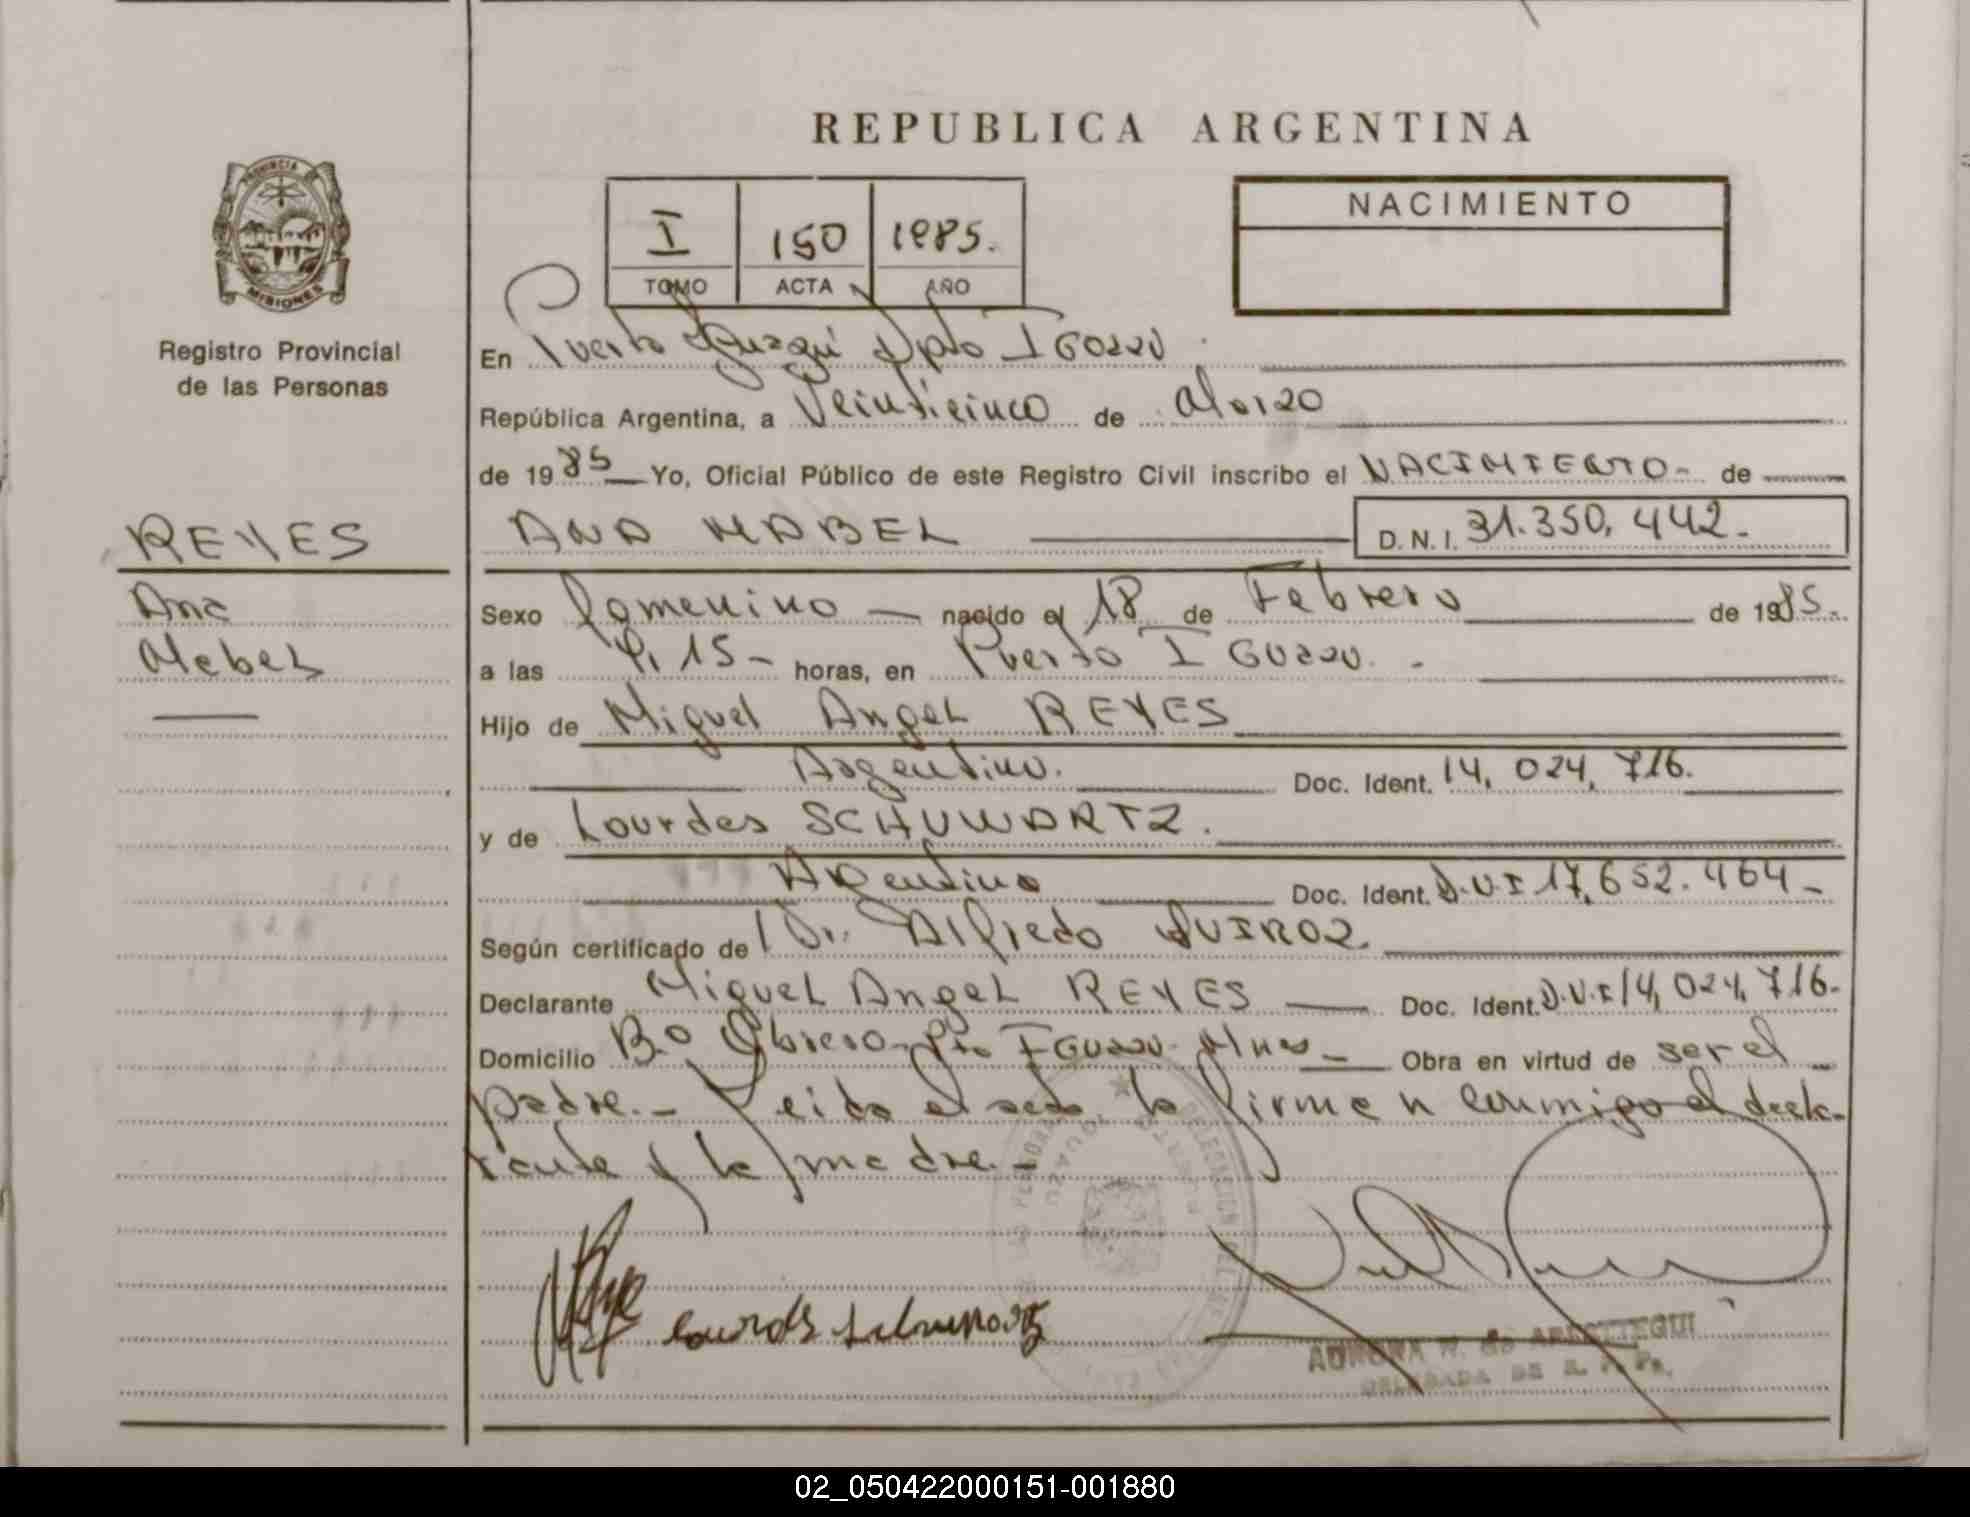 REPUBLICA ARGENTINA
PROVINCIA DE
MISIONES
Registro Provincial
de las Personas
I 150 1985.
TOMO ACTA AÑO
NACIMIENTO
En Puerto Iguazú Dpto IGUAZU
República Argentina, a Veinticinco de Marzo
de 1985 Yo, Oficial Público de este Registro Civil inscribo el NACIMIENTO - de
REYES
Ana
Mabel
ANA MABEL D.N.I. 31.350.442.-
Sexo femenino nacido el 18 de Febrero de 1985.
a las 4,15 - horas, en Puerto IGUAZU. -
Hijo de Miguel Angel REYES
Argentino. Doc. Ident. 14,024,716.
y de Lourdes SCHUWARTZ.
Argentina Doc. Ident. D.N.I 17,652.464 -
Según certificado de Dr. Alfredo QUIROZ.
Declarante Miguel Angel REYES Doc. Ident. D.N.I 14,024,716.
Domicilio B.º Obrero - Pto IGUAZU - Mnes - Obra en virtud de ser el
padre. - Leida el acta, la firman conmigo el decla-
rante y la madre. -
DELEGACION
AURORA N. de ARRETEGUI
DELEGADA DE R. P. Ps.
02_050422000151-001880